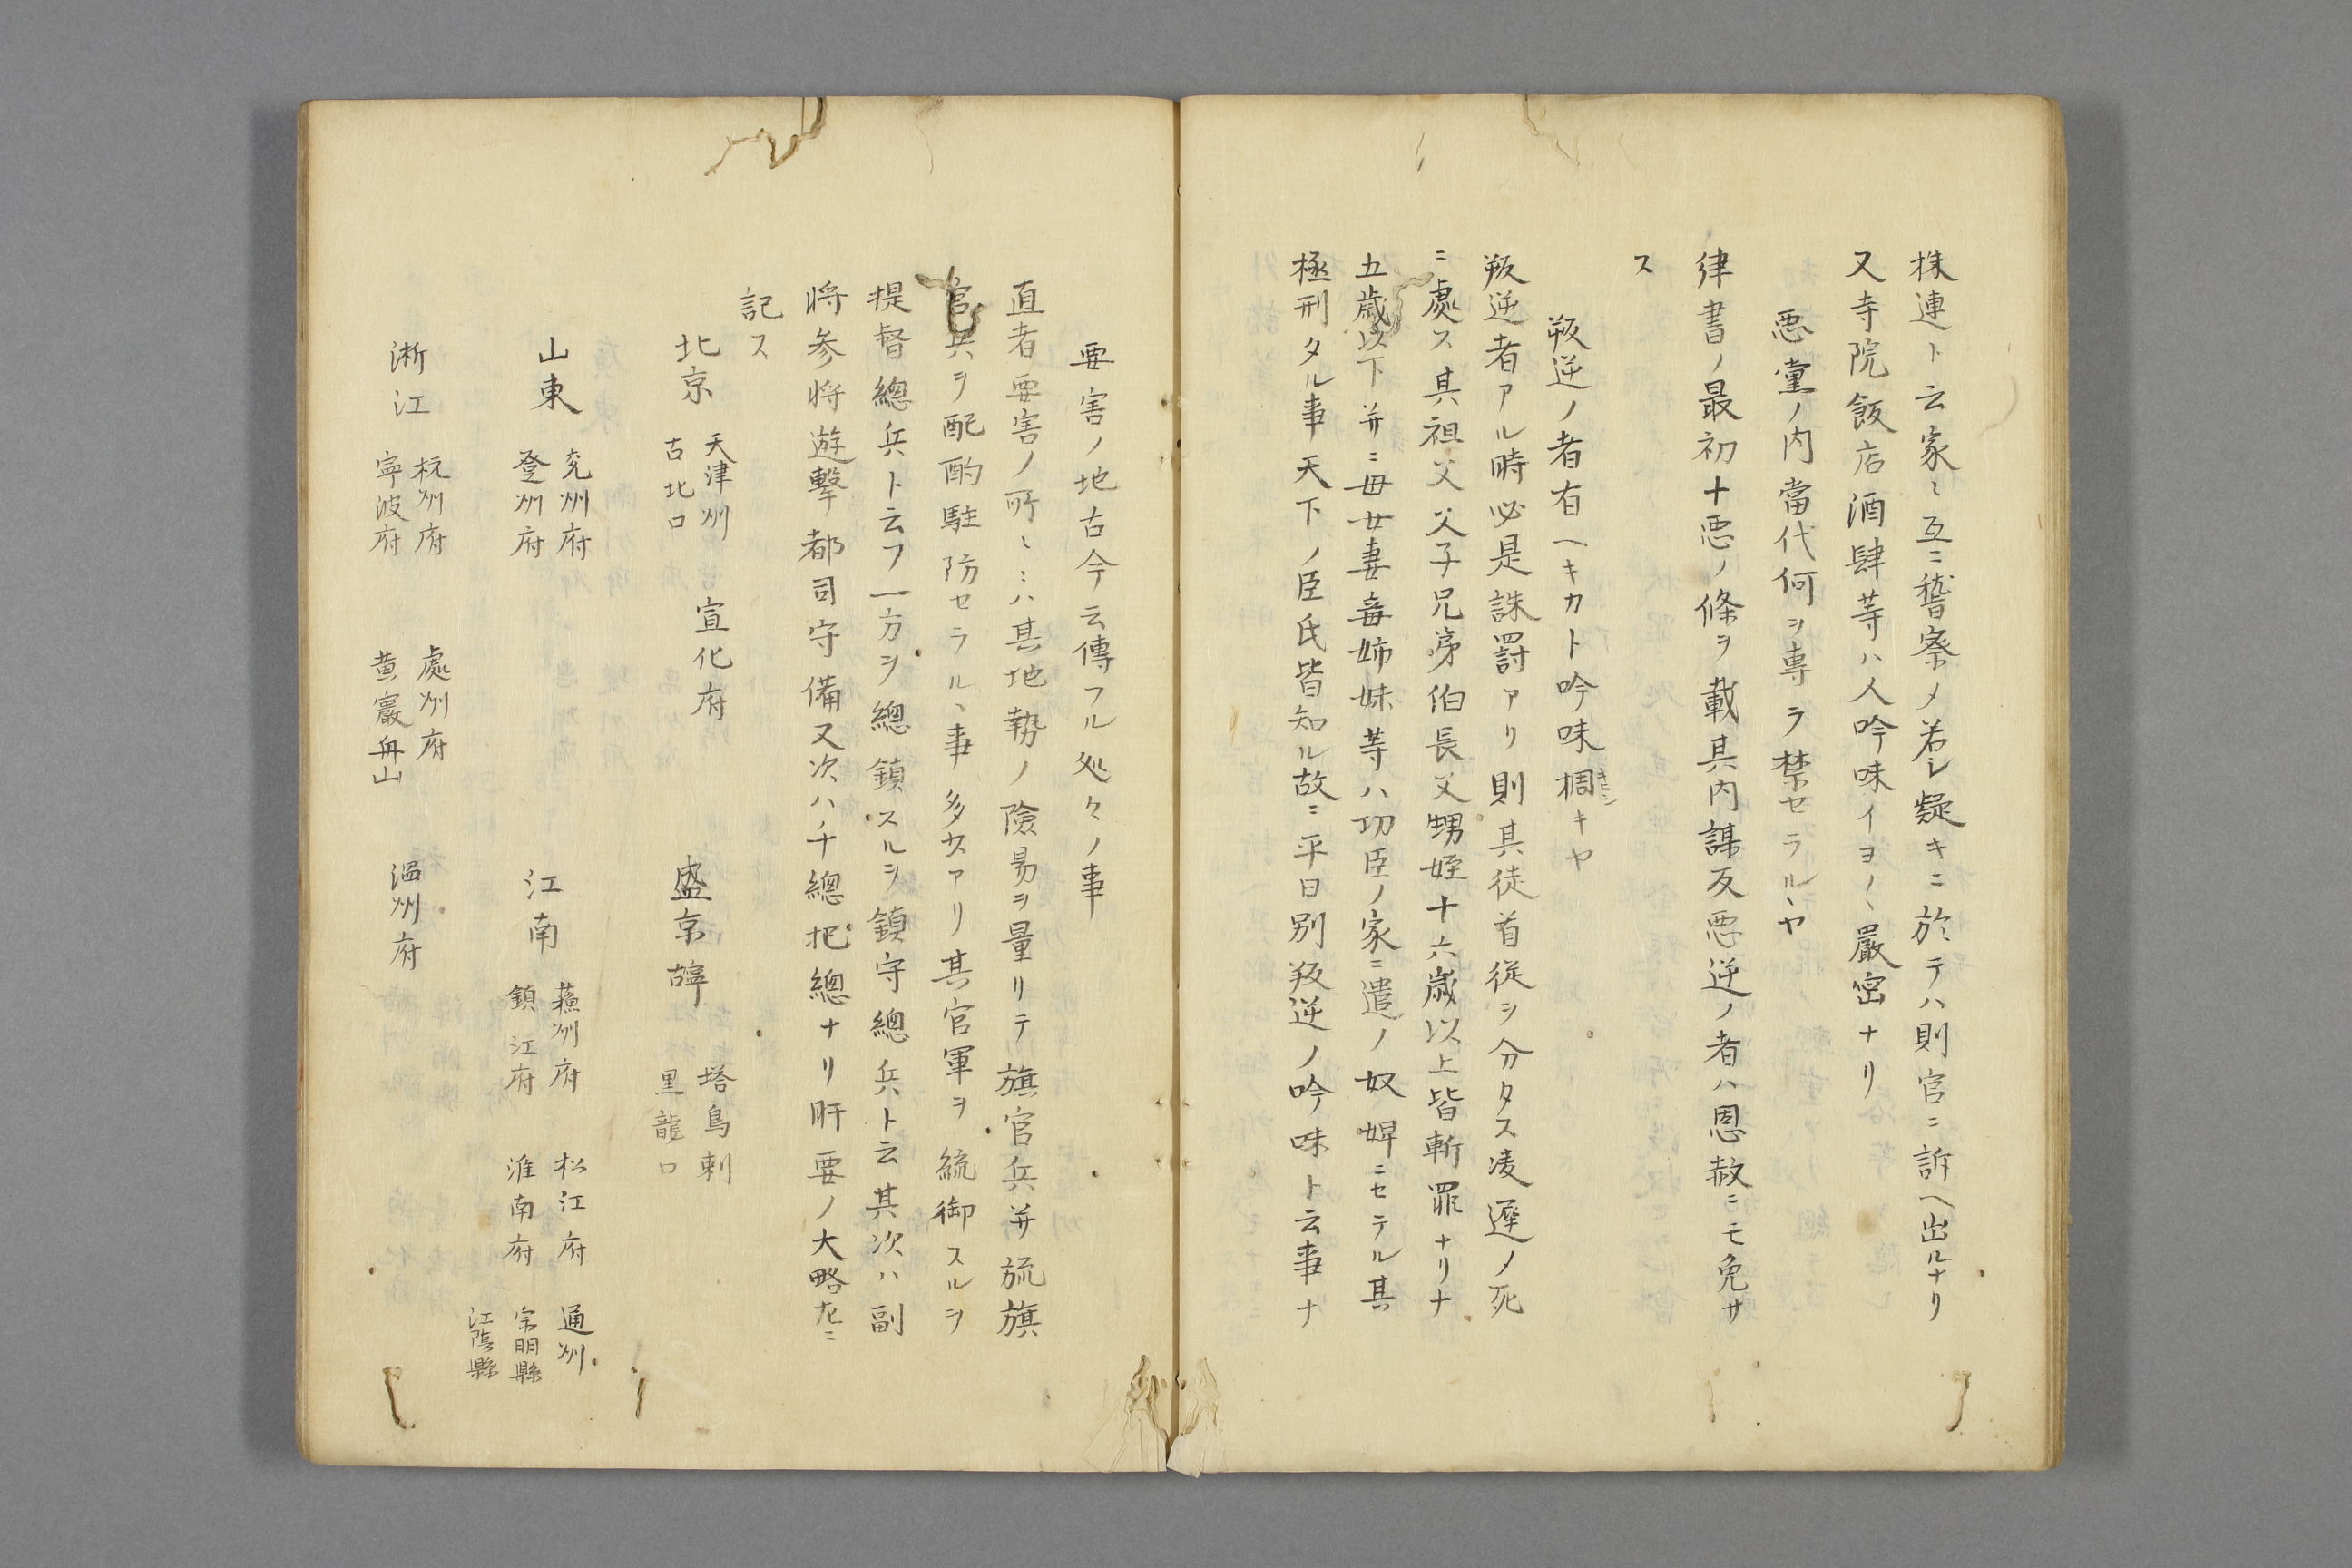 株連ト云家〻互ニ稽察メ若シ疑キニ於テハ則官ニ訴ヘ出ルナリ
又寺院飯店酒肆䓁ハ人吟味イヨ〳〵嚴密ナリ
悪黨ノ内當代何ヲ専ラ禁セラルヽヤ
律書ノ最初十悪ノ條ヲ載其内謀反悪逆ノ者ハ恩赦ニモ免サ
ス
叛逆ノ者有ヘキカト吟味稠キヤ
キヒシ
叛逆者アル時必是誅罸アリ則其徒首従ヲ分タス凌遲ノ死
ニ處ス其祖父父子兄弟伯叔父甥姪十六歳以上皆斬罪ナリナ
五歳以下并ニ母女妻妾姉妹䓁ハ功臣ノ家ニ遣ノ奴婢ニセテル其
極刑タル事天下ノ臣氏皆知ル故ニ平日別叛逆ノ吟味ト云事ナ
要害ノ地古今云傳フル処々ノ事
直者要害ノ所〻ニハ其地勢ノ險易ヲ量リテ旗官兵并旒旗
官兵ヲ配酌駐防セラルヽ事多々アリ其官軍ヲ統御スルヲ
提督總兵ト云フ一方ヲ總鎮スルヲ鎮守總兵ト云其次ハ副
将参将遊擊都司守備又次ハ千總把總ナリ肝要ノ大略左ニ
記ス
北京 天津州 古北口 宣化府 盛京 塔烏剌 黒龍口
山東 兖州府 登州府 江南 蘓州府 鎮江府 松江府 淮南府 通州 宗明縣 江陰縣
淅江 杭州府 寧波府 處州府 黄巖舟山 温州府